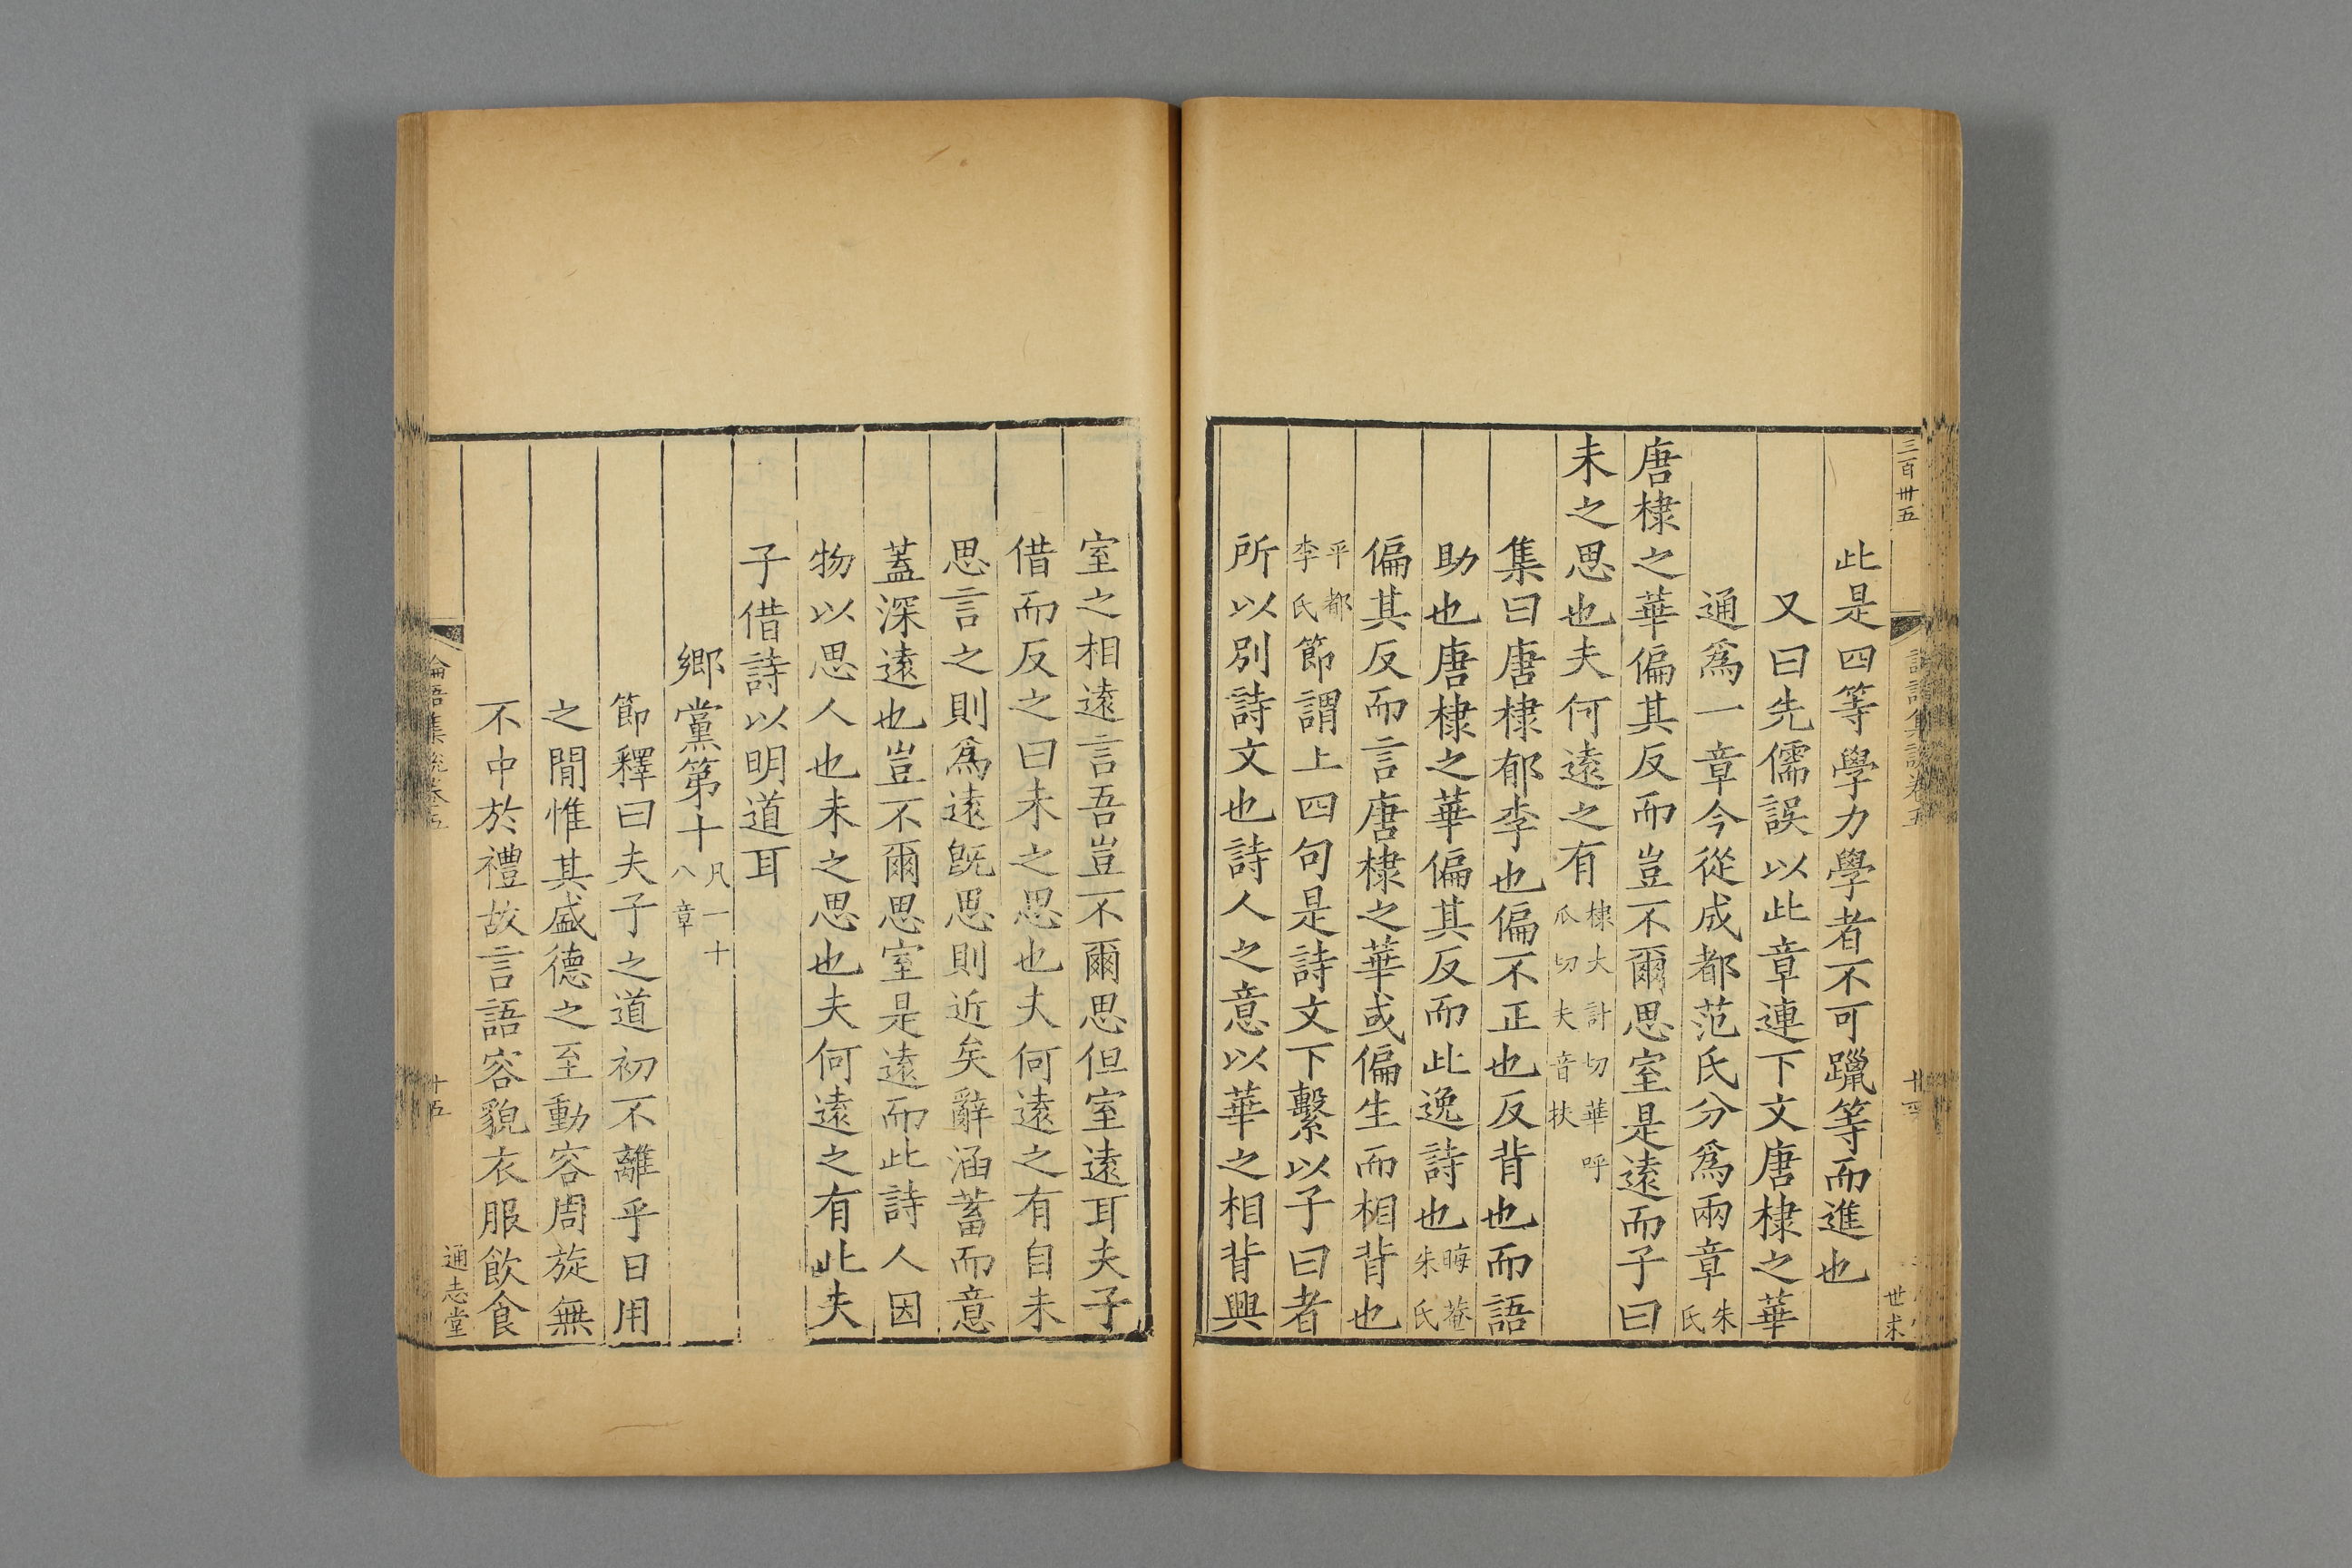 三百卅五
世求
此是四等學力學者不可躐等而進也
又曰先儒誤以此章連下文唐棣之華
通爲一章今從成都范氏分爲兩章朱氏
唐棣之華偏其反而豈不爾思室是遠而子曰
未之思也夫何遠之有棣大計切華呼瓜切夫音扶
集曰唐棣郁李也偏不正也反背也而語
助也唐棣之華偏其反而此逸詩也晦菴朱氏
偏其反而言唐棣之華或偏生而相背也
平都李氏節謂上四句是詩文下繫以子曰者
所以別詩文也詩人之意以華之相背興
室之相遠言吾豈不爾思但室遠耳夫子
借而反之曰未之思也夫何遠之有自未
思言之則爲遠旣思則近矣辭涵蓄而意
蓋深遠也豈不爾思室是遠而此詩人因
物以思人也未之思也夫何遠之有此夫
子借詩以明道耳
鄉黨第十凡一十八章
節釋曰夫子之道初不離乎日用
之閒惟其盛德之至動容周旋無
不中於禮故言語容貌衣服飲食
論語集說卷五
十五
通志堂